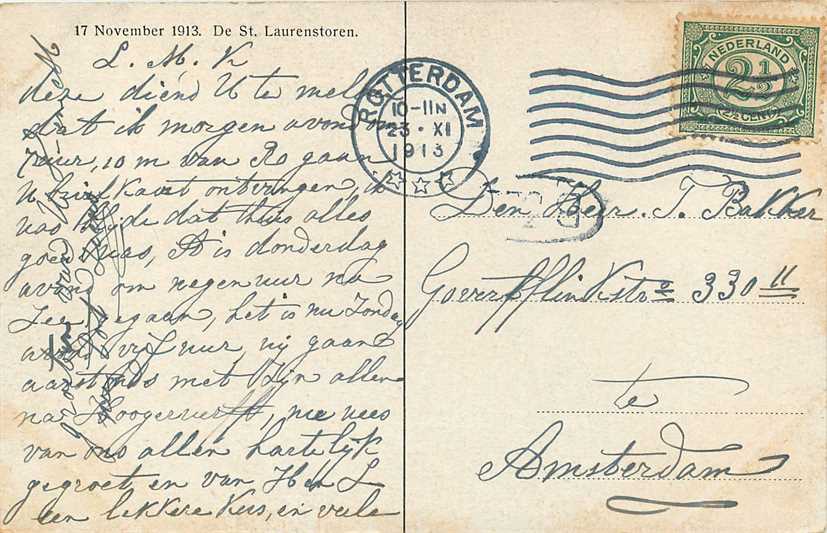 17 November 1913. De St. Laurenstoren.
L. M. K
deze diend U te mel
dat ik morgen avond om
7 uur, 10 m van Ro gaan
U briefkaart ontvangen, ik
was blijde dat thuis alles
goed was, A is donderdag
avond om negen uur na
Zee gegaan, het is nu Zondag
avond vijf uur, wij gaan
met Zijn allen
na Hoogerwerff, nu wees
van ons allen hartelijk
gegroet en van H en L
een lekkere kus, en vele
ROTTERDAM
10-11N
23 · XI
1913
NEDERLAND
2½
2½ CENT
Den Heer. T. Bakker
Govert Flinkstr 330 II
te
Amsterdam